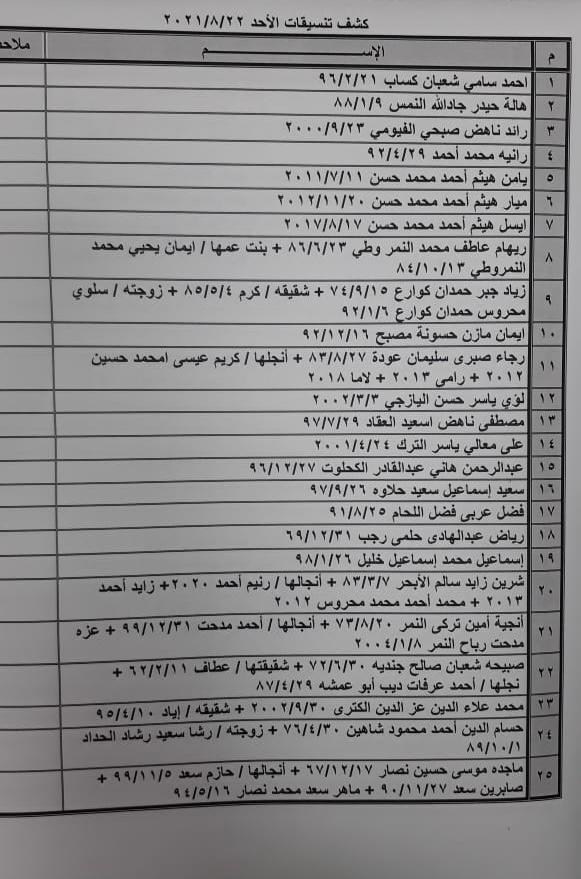 كشف تنسيقات الأحد ٢٠٢١/٨/٢٢
م الإســـم ملاحظ
١ احمد سامي شعبان كساب ٩٦/٢/٢١
٢ هالة حيدر جادالله النمس ٨٨/١/٩
٣ رائد ناهض صبحي الفيومي ٢٠٠٠/٩/٢٣
٤ رانيه محمد أحمد ٩٢/٤/٢٩
٥ يامن هيثم أحمد محمد حسن ٢٠١١/٧/١١
٦ ميار هيثم أحمد محمد حسن ٢٠١٢/١١/٢٠
٧ ايسل هيثم أحمد محمد حسن ٢٠١٧/٨/١٧
٨ ريهام عاطف محمد النمر وطي ٨٦/٦/٢٣ + بنت عمها / ايمان يحيي محمد
النمروطي ٨٤/١٠/١٣
٩ زياد جبر حمدان كوارع ٧٤/٩/١٥ + شقيقه / كرم ٨٥/٥/٤ + زوجته / سلوي
محروس حمدان كوارع ٩٢/١/٦
١٠ ايمان مازن حسونة مصبح ٩٢/١٢/١٦
١١ رجاء صبرى سليمان عودة ٨٣/٨/٢٧ + أنجلها / كريم عيسى امحمد حسين
٢٠١٢ + رامى ٢٠١٣ + لاما ٢٠١٨
١٢ لؤي ياسر حسن اليازجي ٢٠٠٢/٣/٣
١٣ مصطفى ناهض اسعيد العقاد ٩٧/٧/٢٩
١٤ على معالي ياسر الترك ٢٠٠١/٤/٢٤
١٥ عبدالرحمن هاني عبدالقادر الكحلوت ٩٦/١٢/٢٧
١٦ سعيد إسماعيل سعيد حلاوه ٩٧/٩/٢٦
١٧ فضل عربى فضل اللحام ٩١/٨/٢٥
١٨ رياض عبدالهادى حلمى رجب ٦٩/١٢/٣١
١٩ إسماعيل محمد إسماعيل خليل ٩٨/١/٢٦
٢٠ شرين زايد سالم الأبحر ٨٣/٣/٧ + أنجالها / رنيم أحمد ٢٠٢٠+ زايد أحمد
٢٠١٣ + محمد أحمد محمد محروس ٢٠١٢
٢١ أنجية أمين تركى النمر ٧٣/٨/٢٠ + أنجالها / أحمد مدحت ٩٩/١٢/٣١ + عزه
مدحت رباح النمر ٢٠٠٤/١/٨
٢٢ صبيحه شعبان صالح جنديه ٧٢/٦/٣٠ + شقيقتها / عطاف ٦٢/٢/١١ +
نجلها / أحمد عرفات ديب أبو عمشه ٨٧/٤/٢٩
٢٣ محمد علاء الدين عز الدين الكترى ٢٠٠٢/٩/٣٠ + شقيقه / إياد ٩٥/٤/١٠
٢٤ حسام الدين أحمد محمود شاهين ٧٦/٤/٣٠ + زوجته / رشا سعيد رشاد الحداد
٨٩/١٠/١
٢٥ ماجده موسى حسين نصار ٦٧/١٢/١٧ + أنجالها / حازم سعد ٩٩/١١/٥ +
صابرين سعد ٩٠/١١/٢٧ + ماهر سعد محمد نصار ٩٤/٥/١٦